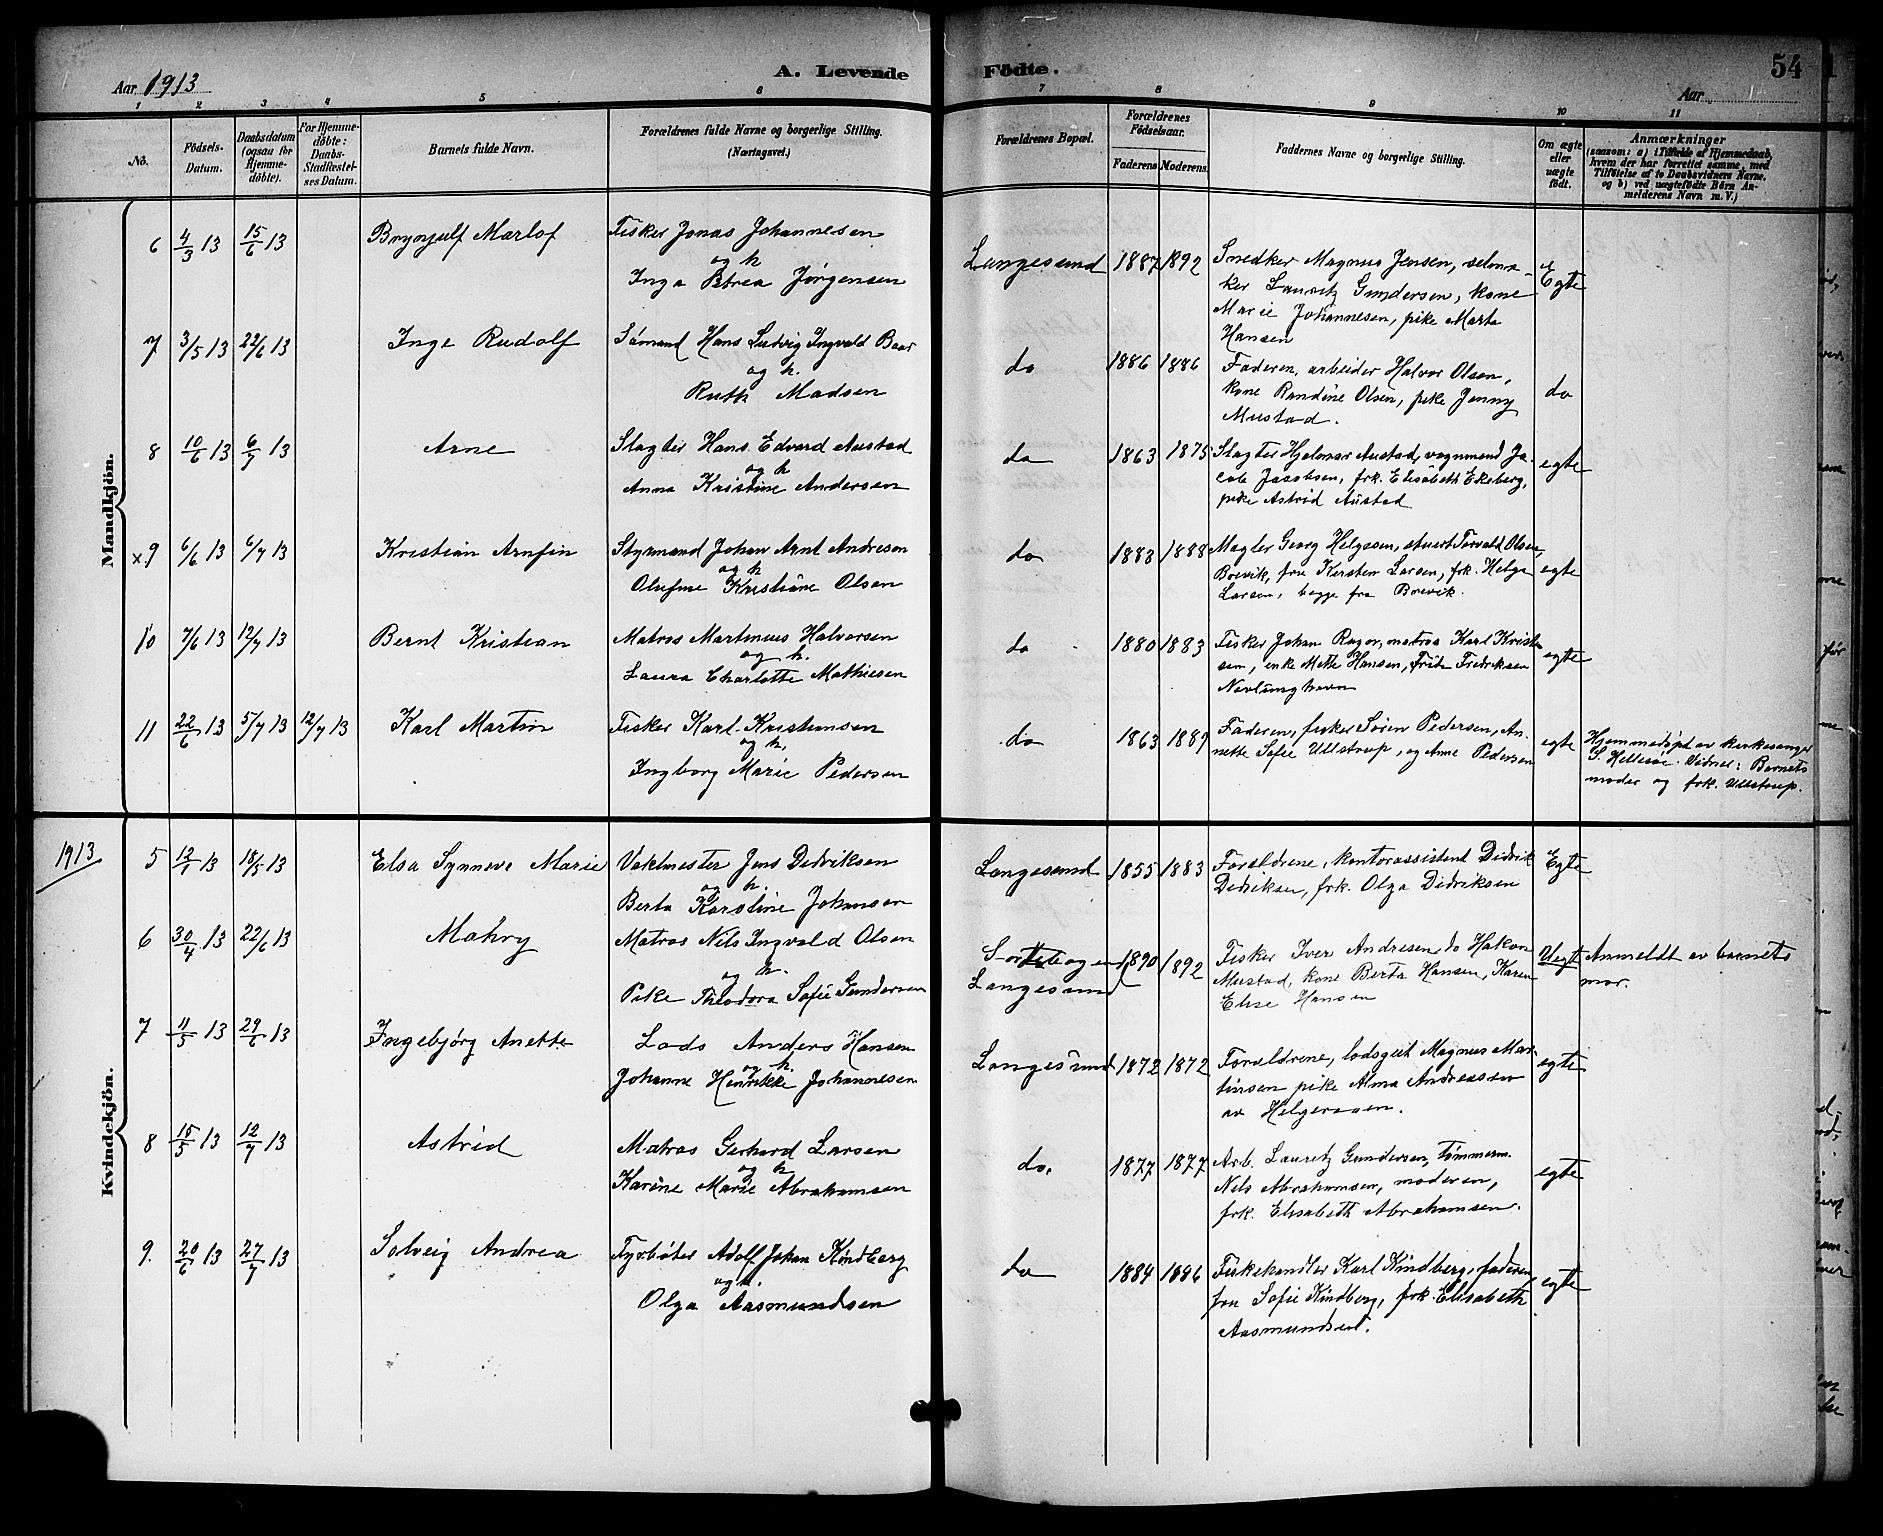 Aar 1913
A. Levende Födte.
54
Aar 1
1 2 3 4 5 6 7 8 9 10 11
No.
Födsels-Datum.
Daabsdatum (ogsaa for Hjemme-döbte).
For Hjemme-döbte: Daabs-Stadfæstel-ses Datum.
Barnets fulde Navn.
Forældrenes fulde Navne og borgerlige Stilling. (Næringsvei.)
Forældrenes Bopæl.
Forældrenes Födselsaar.
Faderens. Moderens.
Faddernes Navne og borgerlige Stilling.
Om ægte eller uægte födt.
Anmærkninger
(saasom: a) i Tilfælde af Hjemmedaab, hvem der har forrettet samme, med Tilföielse af to Daabsvidners Navne, og b) ved uægtefödte Börn An-melderens Navn m. V.)
Mandkjön.
6 4/3 13 15/6 13 Brynjulf Marlof
Fisker Jonas Johannesen
og h
Inga Petrea Jørgensen
Langesund 1887 1892
Snedker Magnus Jensen, selma-
ker Lauritz Gundersen, kone
Marie Johannesen, pike Marta
Hansen
Egte
7 3/5 13 22/6 13 Inge Rudolf
Sømand Hans Ludvig Ingvald Baar
og h.
Ruth Madsen
do 1886 1886
Faderen, arbeider Halvor Olsen,
kone Randine Olsen, pike Jenny
Mustad.
do
8 10/6 13 6/7 13 Arne
Slagter Hans Edvard Austad
og h
Anna Kristine Andersen
do 1863 1875
Slagter Hjelmar Austad, vognmand Ja-
cob Jacobsen, frk. Elisabeth Ekeberg,
pike Astrid Austad
egte
x9 6/6 13 6/7 13 Kristian Arnfin
Styrmand Johan Arnt Andresen
og h
Olufine Kristiane Olsen
do 1883 1888
Magler Georg Helgesen, stuert Torvald Olsen,
Brevik, fru Kirsten Larsen, frk. Helga
Larsen, begge fra Brevik.
egte
10 7/6 13 12/7 13 Bernt Kristian
Matros Martinius Halvorsen
og h.
Laura Charlotte Mathisen
do 1880 1883
Fisker Johan , matros Karl Kristen
sen, enke Mette Hansen, Frida Fredriksen
Nevlunghavn
egte
11 22/6 13 5/7 13 12/7 13 Karl Martin
Fisker Karl Kristiansen
og h.
Ingborg Marie Pedersen
do 1863 1889
Faderen, fisker Søren Pedersen, An-
nette Sofie Ullstrup, og Anne Pedersen
egte
Hjemmedøpt av kirkesanger
S. Vidner: Barnets
moder og frk. Ullstrup.
1913
Kvindekjön.
5 12/1 13 18/5 13 Elsa Synnøve Marie
Vaktmester Jens Dedriksen
og h.
Berta Karoline Johansen
Langesund 1855 1883
Forældrene, kontorassistent Didrik
Dedriksen, frk. Olga Didriksen
Egte
6 30/4 13 22/6 13 Mahry
Matros Nils Ingvald Olsen
og h.
Pike Theodora Sofie Gundersen
og
Langesund 1890 1892
Fisker Iver Andresen, do Hakon
Mustad, kone Berta Hansen, Karen
Elise Hansen
Uegt
Anmeldt av barnets
mor.
7 11/5 13 29/6 13 Ingebjørg Anette
Lods Anders Hansen
og h.
Johanne Henrikke Johannesen
Langesund 1872 1872
Forældrene, lodsgut Magnus Mar-
tinsen pike Alma Andreassen
av Helgeraaen.
egte
8 15/5 13 12/7 13 Astrid
Matros Gerhard Larsen
og h
Karine Marie Abrahamsen
do. 1877 1877
Arb. Lauritz Gundersen, Tømmerm.
Nils Abrahamsen, moderen,
frk. Elisabeth Abrahamsen.
egte
9. 20/6 13 27/7 13 Solveig Andrea
Fyrbøter Adolf Johan Kindberg
og h.
Olga Aasmundsen
do 1884 1886
Fiskehandler Karl Kindberg, faderen
fru Sofie Kindberg, frk. Elisabeth
Aasmundsen.
egte